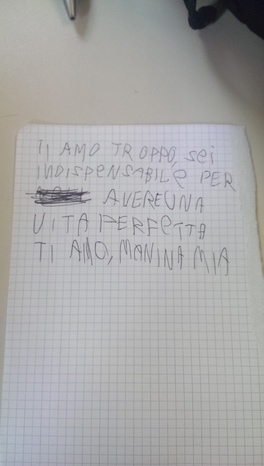 TI AMO TROPPO, sei
INDISPENSABILE PER
AVERE UNA
VITA PERFETTA
TI AMO, MANINA MIA